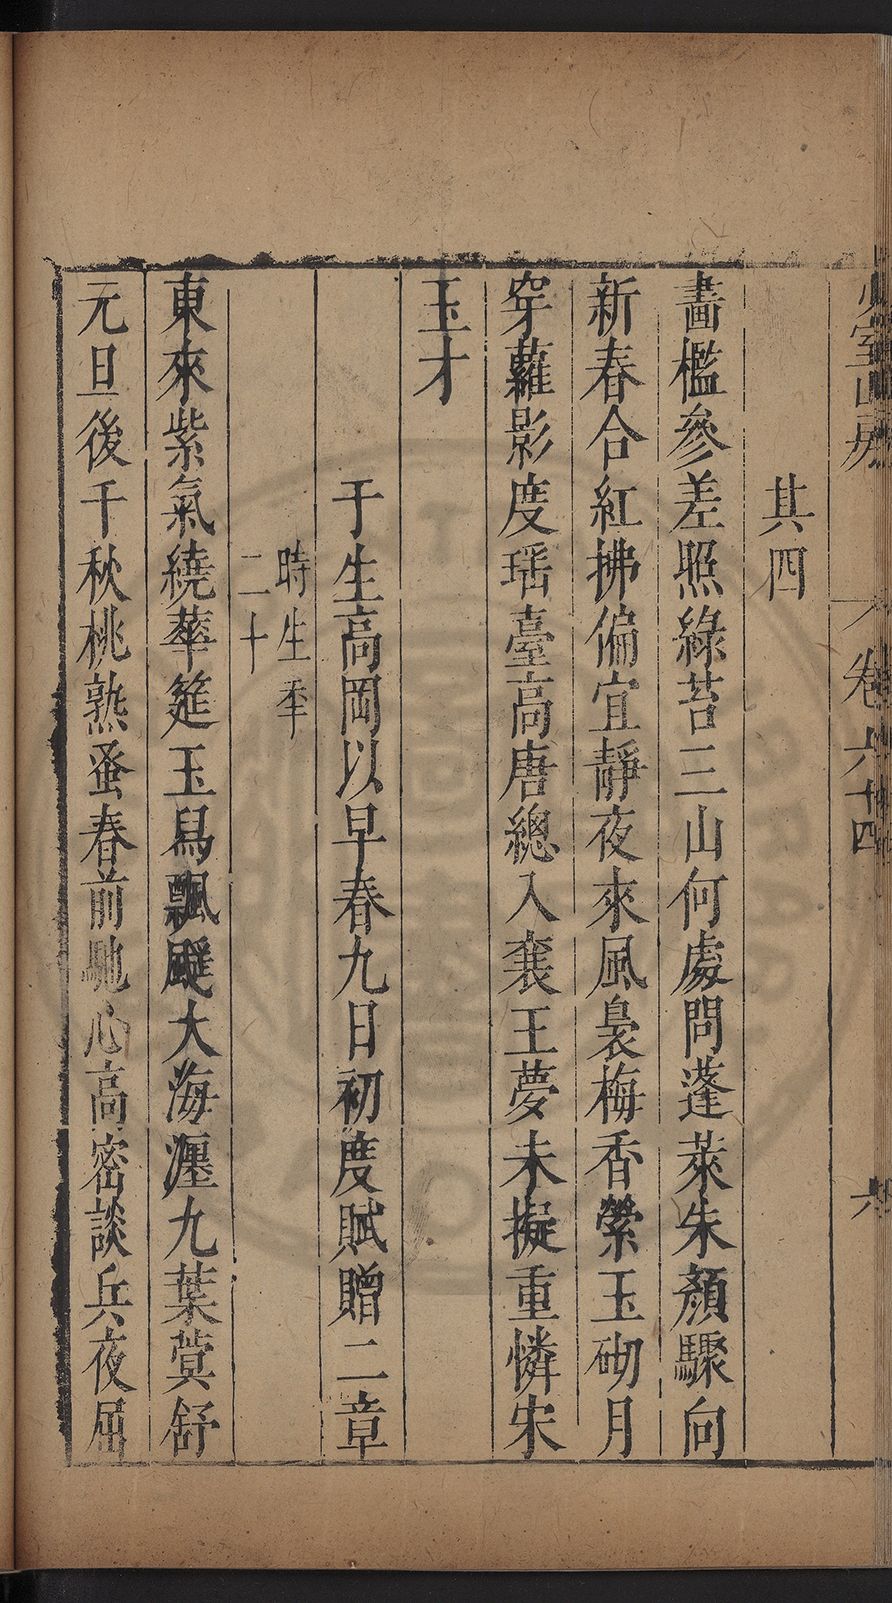 少室山房 卷六十四 六
其四
畫檻參差照綠苔三山何處問蓬萊朱顏驟向
新春合紅拂偏宜靜夜來風裊梅香縈玉砌月
穿蘿影度瑶臺高唐總入襄王夢未擬重憐宋
玉才
于生高岡以早春九日初度賦贈二章
時生秊
二十
東來紫氣繞華筵玉舄飄颻大海瀍九葉蓂舒
元旦後千秋桃熟蚤春前馳心高密談兵夜屈